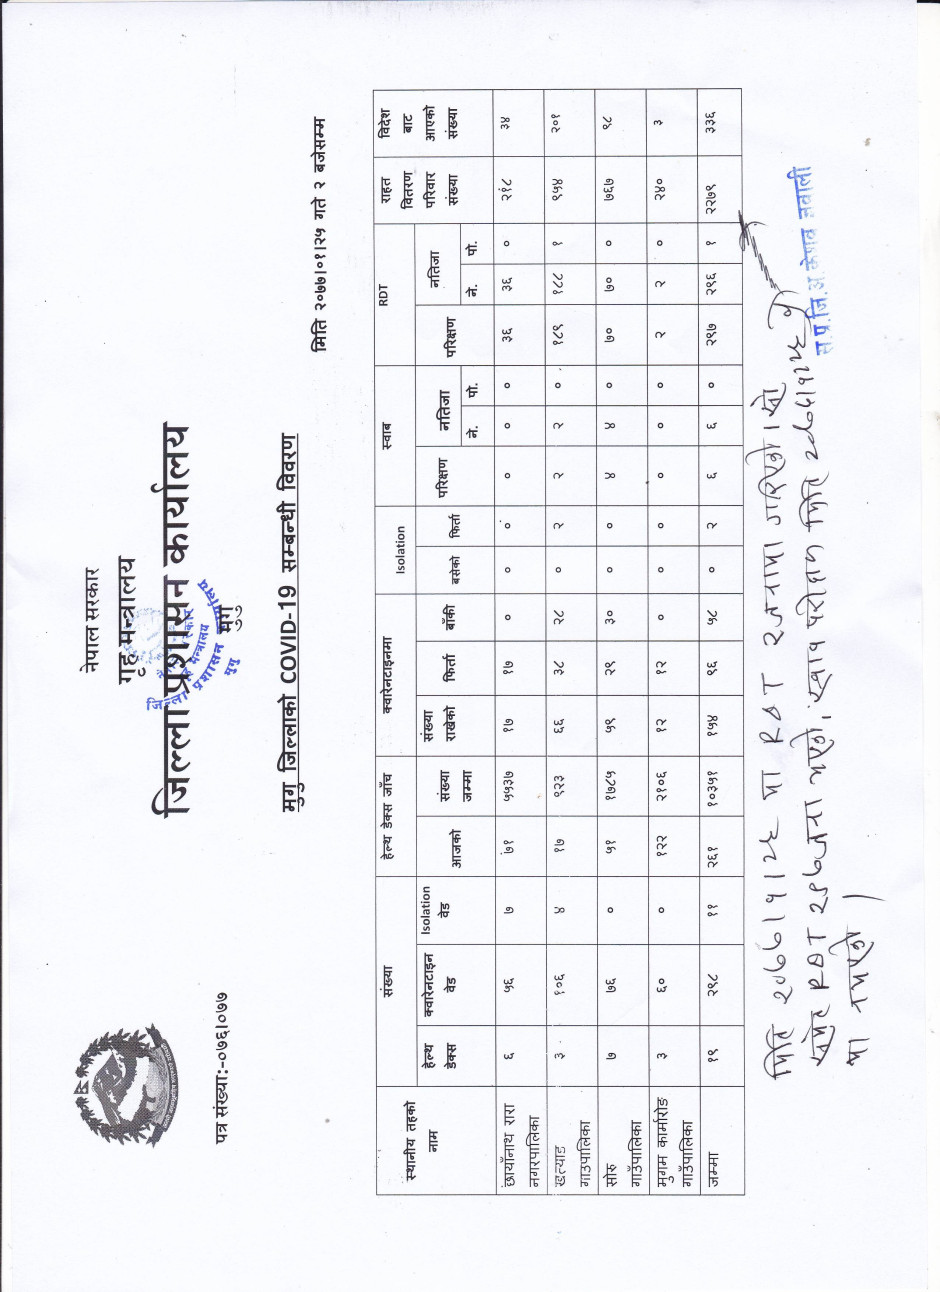 नेपाल सरकार
गृह मन्त्रालय
जिल्ला प्रशासन कार्यालय
मुगु
जिल्ला प्रशासन कार्यालय
मुगु
पत्र संख्या:-०७६।०७७
मुगु जिल्लाको COVID-19 सम्बन्धी विवरण
मिति २०७७।०१।२५ गते २ बजेसम्म
स्थानीय तहको नाम संख्या हेल्थ डेक्स जाँच क्वारेनटाइनमा Isolation स्वाब RDT राहत वितरण परिवार संख्या विदेश बाट आएको संख्या
हेल्थ डेक्स क्वारेनटाइन वेड Isolation वेड आजको संख्या जम्मा संख्या राखेको फिर्ता बाँकी बसेको फिर्ता परिक्षण नतिजा परिक्षण नतिजा
ने. पो. ने. पो.
छायाँनाथ रारा नगरपालिका ६ ५६ ७ ७१ ५५३७ १७ १७ ० ० ० ० ० ० ३६ ३६ ० २१८ ३४
खत्याड गाउपालिका ३ १०६ ४ १७ ९२३ ६६ ३८ २८ ० २ २ २ ० १८९ १८८ १ ९५४ २०१
सोरु गाउँपालिका ७ ७६ ० ५१ १७८५ ५९ २९ ३० ० ० ४ ४ ० ७० ७० ० ७६७ ९८
मुगम कार्मारोङ गाउँपालिका ३ ६० ० १२२ २१०६ १२ १२ ० ० ० ० ० ० २ २ ० २४० ३
जम्मा १९ २९८ ११ २६१ १०३५१ १५४ ९६ ५८ ० २ ६ ६ ० २९७ २९६ १ २२७९ ३३६
मिति २०७७।१।२६ मा RDT २ जनामा गरिएको।
RDT २९७ जना भएको, स्वाब परीक्षण मिति
मा नभएको।
स.प्र.जि.अ.